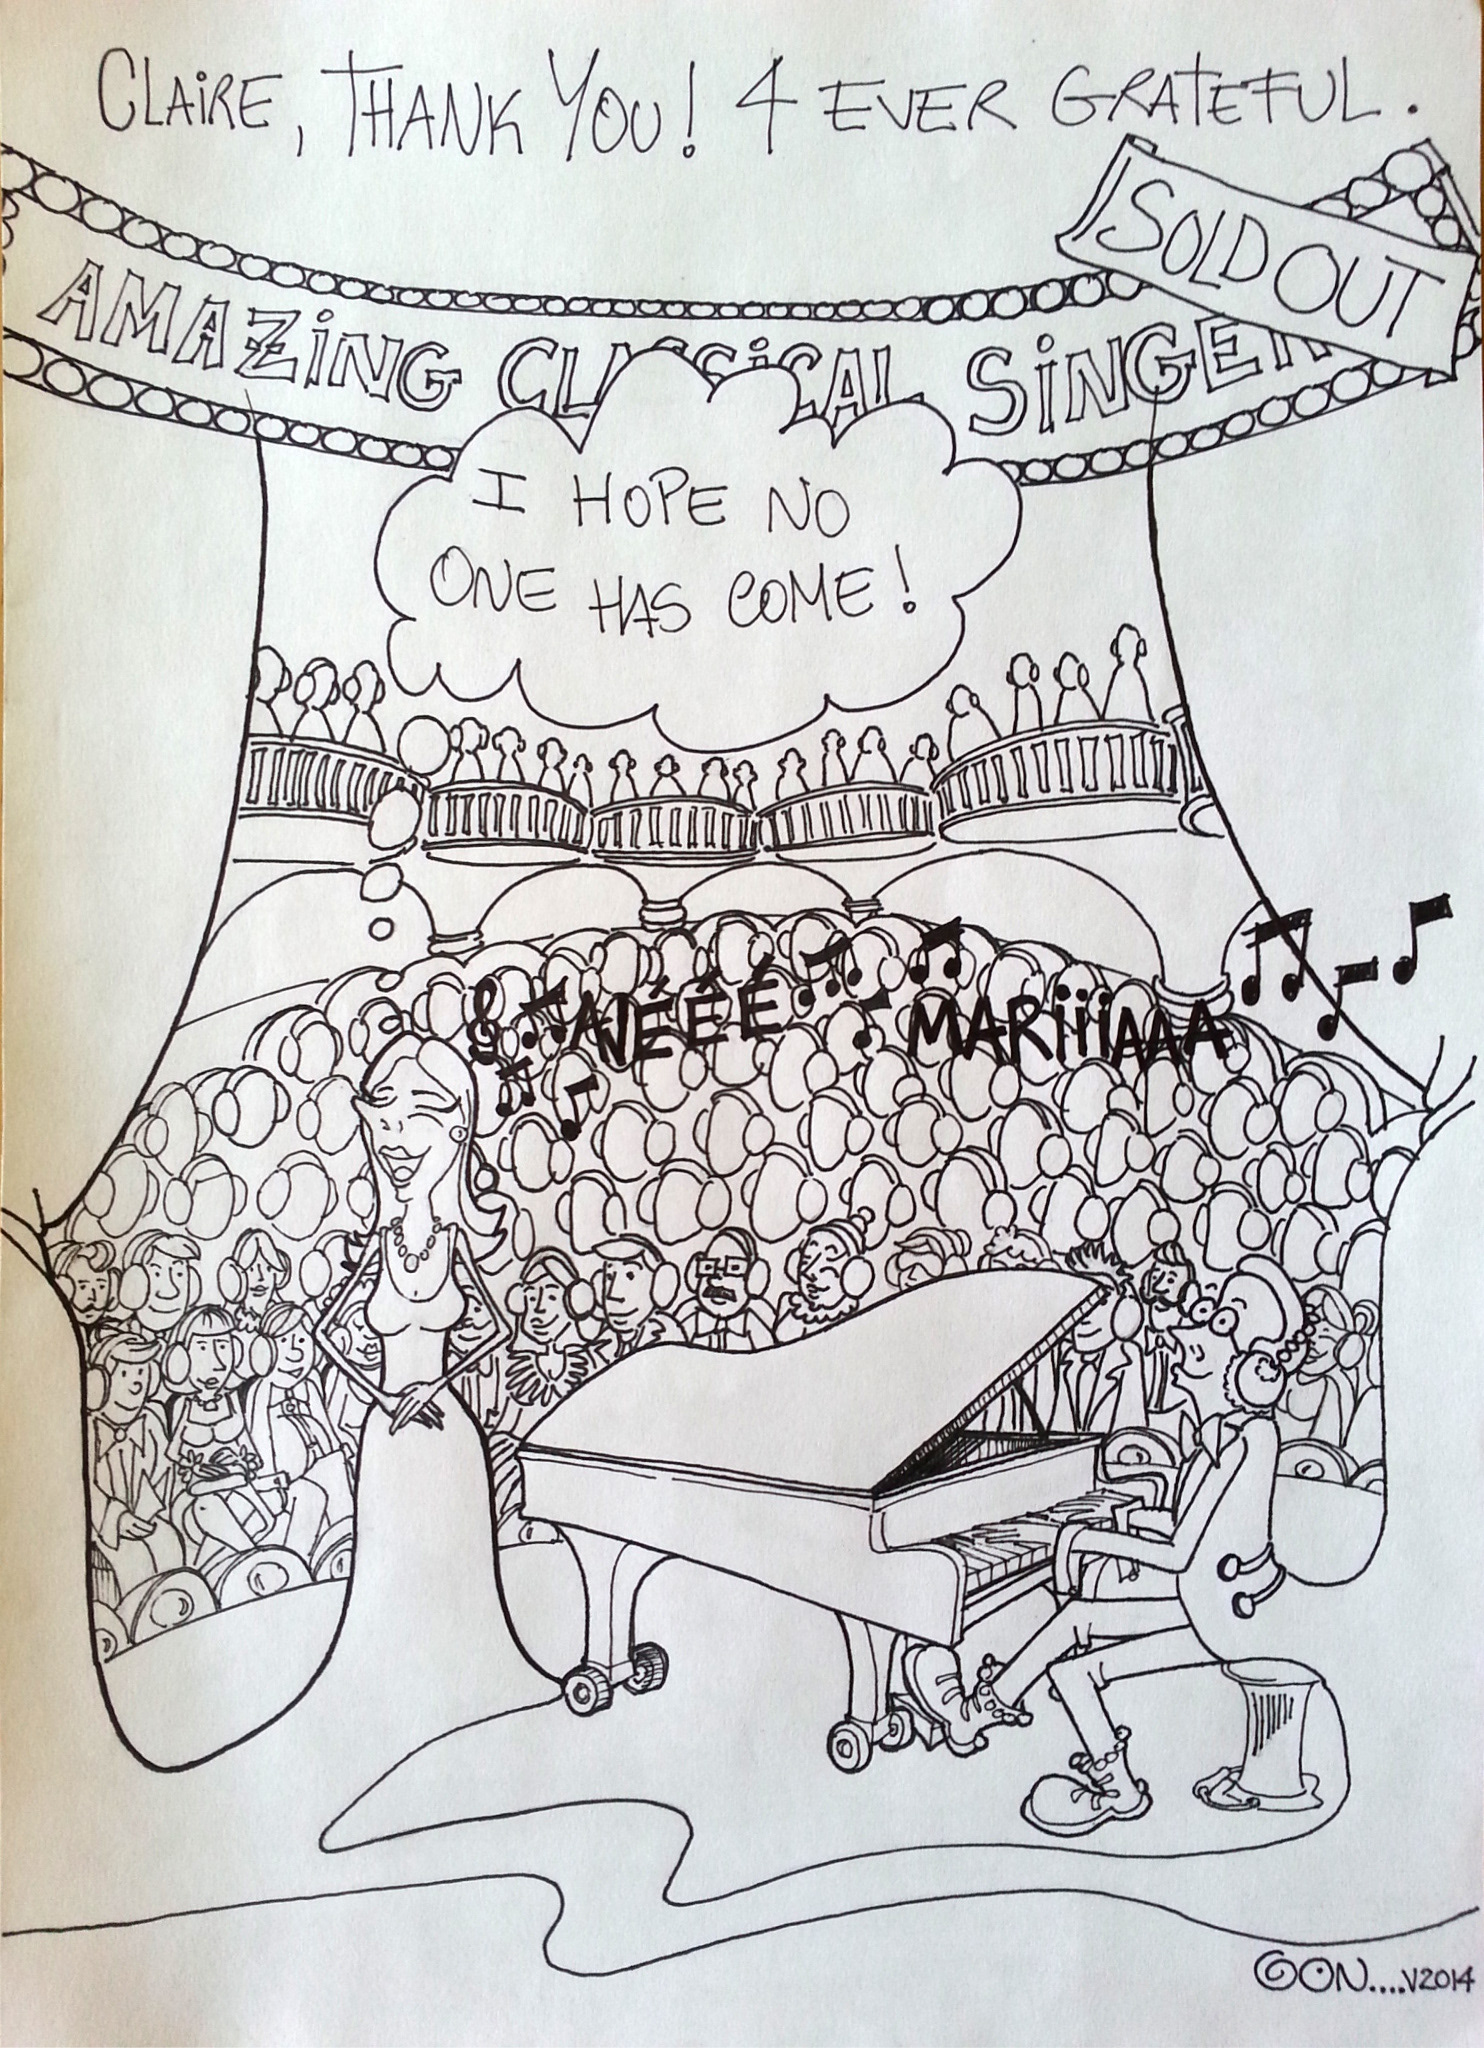 CLAiRE, THANK YOU! 4 EVER GRATEFUL.
SOLD OUT
AMAZiNG CLASSiCAL SiNGER
I HOPE NO
ONE HAS COME!
AVÉÉÉ MARiiiAAA
GON....V2014